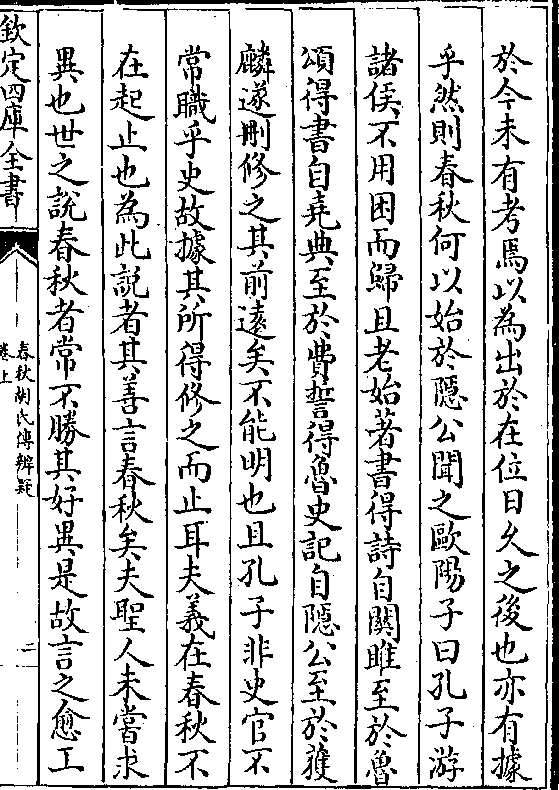 於今未有考焉以為出於在位日久之後也亦有據
乎然則春秋何以始於隱公聞之歐陽子曰孔子游
諸侯不用困而歸且老始著書得詩自關雎至於魯
頌得書自堯典至於費誓得魯史記自隱公至於獲
麟遂刪修之其前遠矣不能明也且孔子非史官不
常職乎史故據其所得修之而止耳夫義在春秋不
在起止也為此說者其善言春秋矣夫聖人未嘗求
異也世之說春秋者常不勝其好異是故言之愈工
欽定四庫全書
春秋胡氏傳辨疑
卷上
二